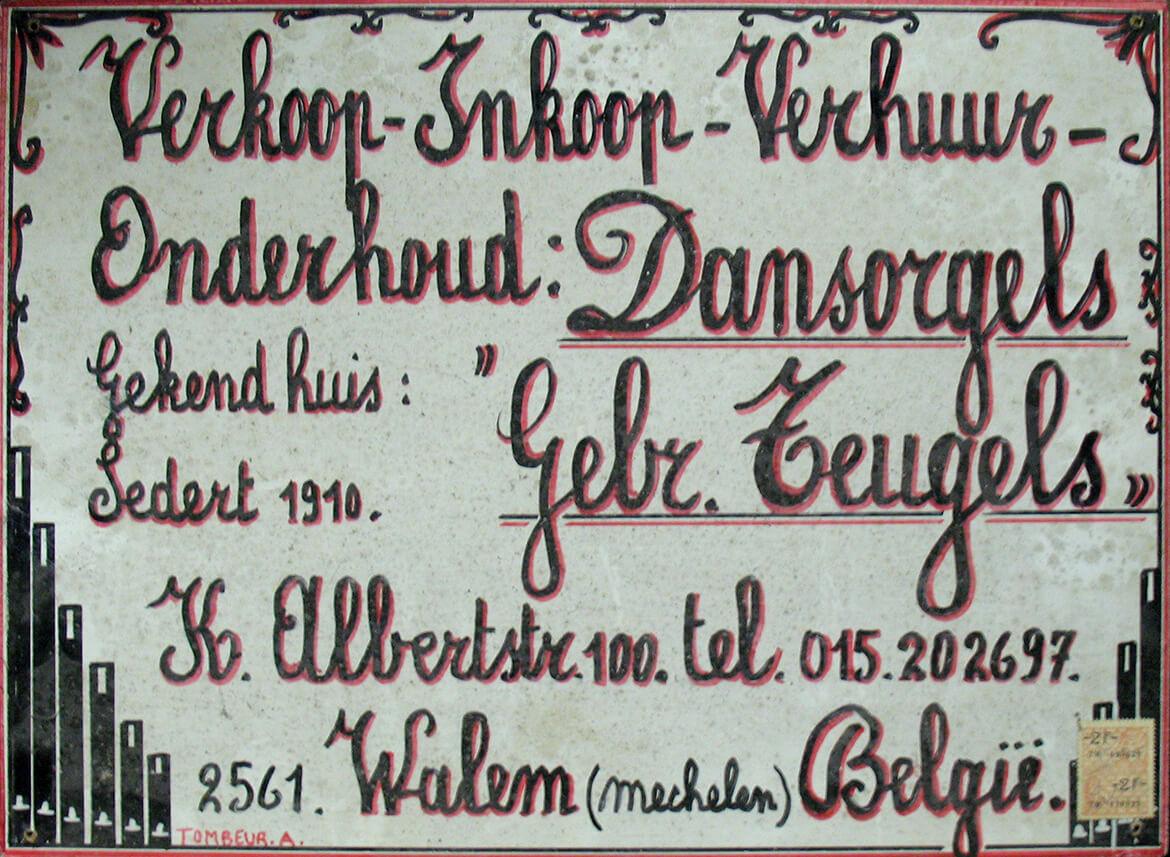 Verkoop - Inkoop - Verhuur -
Onderhoud: Dansorgels
Gekend huis: "Gebr. Teugels"
Sedert 1910.
K. Albertstr. 100. tel. 015.202697.
2561. Walem (mechelen) België.
TOMBEUR. A.
-2F-
-2F-